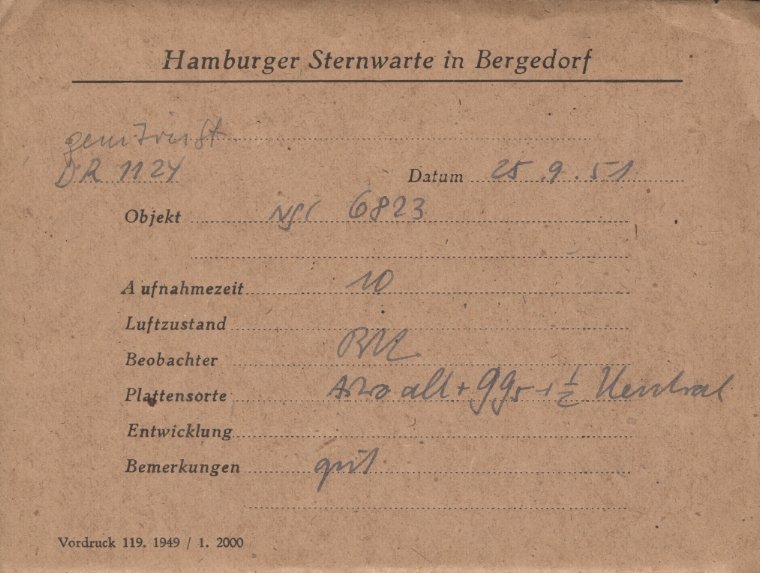 Hamburger Sternwarte in Bergedorf
DR 1124
Datum 25.9.51
Objekt NGC 6823
Aufnahmezeit 10
Luftzustand
Beobachter
Plattensorte Astro alt + GG5 + 1/2 Neutral
Entwicklung
Bemerkungen gut
Vordruck 119. 1949 / 1. 2000